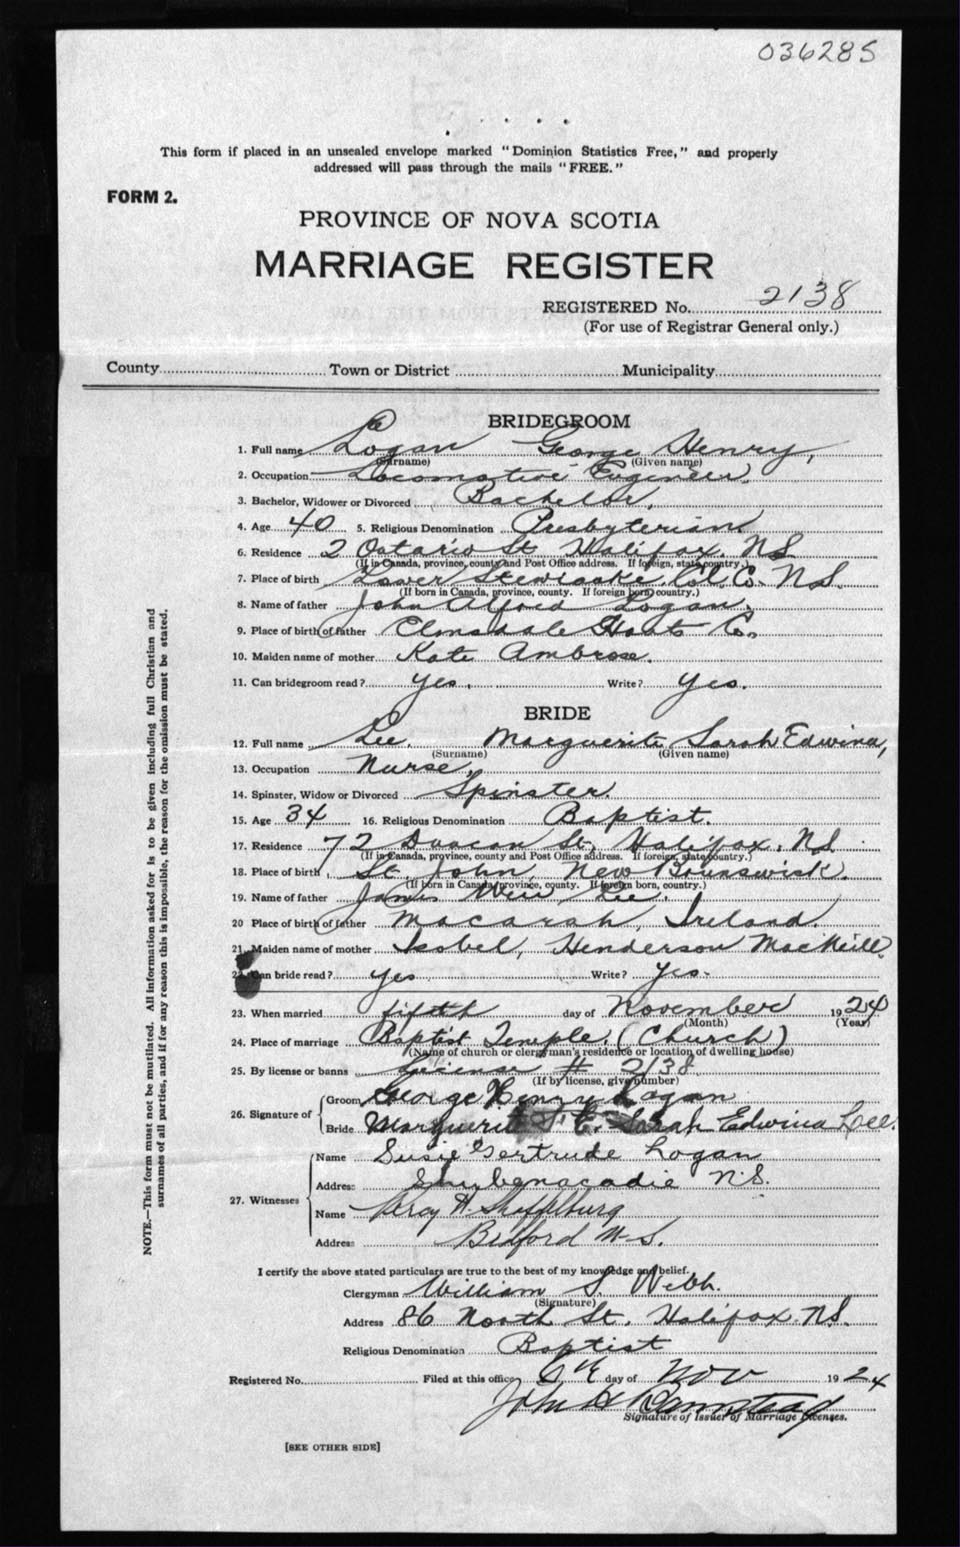 036285
This form if placed in an unsealed envelope marked "Dominion Statistics Free," and properly
addressed will pass through the mails "FREE."
FORM 2.
PROVINCE OF NOVA SCOTIA
MARRIAGE REGISTER
REGISTERED No. 2138
(For use of Registrar General only.)
County Town or District Municipality
BRIDEGROOM
1. Full name Logan George Henry,
(Surname) (Given name)
2. Occupation Locomotive Engineer.
3. Bachelor, Widower or Divorced Bachelor.
4. Age 40 5. Religious Denomination Presbyterian
6. Residence 2 Ontario St Halifax. N.S.
(If in Canada, province, county and Post Office address. If foreign, state country.)
7. Place of birth Lower Stewiacke. Col. Co. N.S.
(If born in Canada, province, county. If foreign born, country.)
8. Name of father John Alfred Logan.
9. Place of birth of father Elmsdale Hants Co.
10. Maiden name of mother Kate Ambrose.
11. Can bridegroom read? Yes. Write? Yes.
BRIDE
12. Full name Lee. Marguerite Sarah Edwina,
(Surname) (Given name)
13. Occupation Nurse,
14. Spinster, Widow or Divorced Spinster.
15. Age 34 16. Religious Denomination Baptist.
17. Residence 72 Duncan St, Halifax. N.S.
(If in Canada, province, county and Post Office address. If foreign, state country.)
18. Place of birth St. John, New Brunswick.
(If born in Canada, province, county. If foreign born, country.)
19. Name of father James Weir Lee.
20 Place of birth of father Macarah, Ireland.
21. Maiden name of mother Isobel, Henderson MacNeill.
22. Can bride read? Yes Write? Yes.
23. When married fifth day of November 1924
(Month) (Year)
24. Place of marriage Baptist Temple. (Church)
(Name of church or clergyman's residence or location of dwelling house)
25. By license or banns License # 2138
(If by license, give number)
26. Signature of
Groom George Henry Logan
Bride Marguerite E. Sarah Edwina Lee.
27. Witnesses
Name Susie Gertrude Logan
Address Shubenacadie N.S.
Name Percy H.
Address Bedford N.S.
I certify the above stated particulars are true to the best of my knowledge and belief.
Clergyman William S. Webb.
(Signature)
Address 86 North St. Halifax. N.S.
Religious Denomination Baptist
Registered No. Filed at this office 6th day of Nov 1924
John H
Signature of Issuer of Marriage Licenses.
[SEE OTHER SIDE]
NOTE.—This form must not be mutilated. All information asked for is to be given including full Christian and
surnames of all parties, and if for any reason this is impossible, the reason for the omission must be stated.